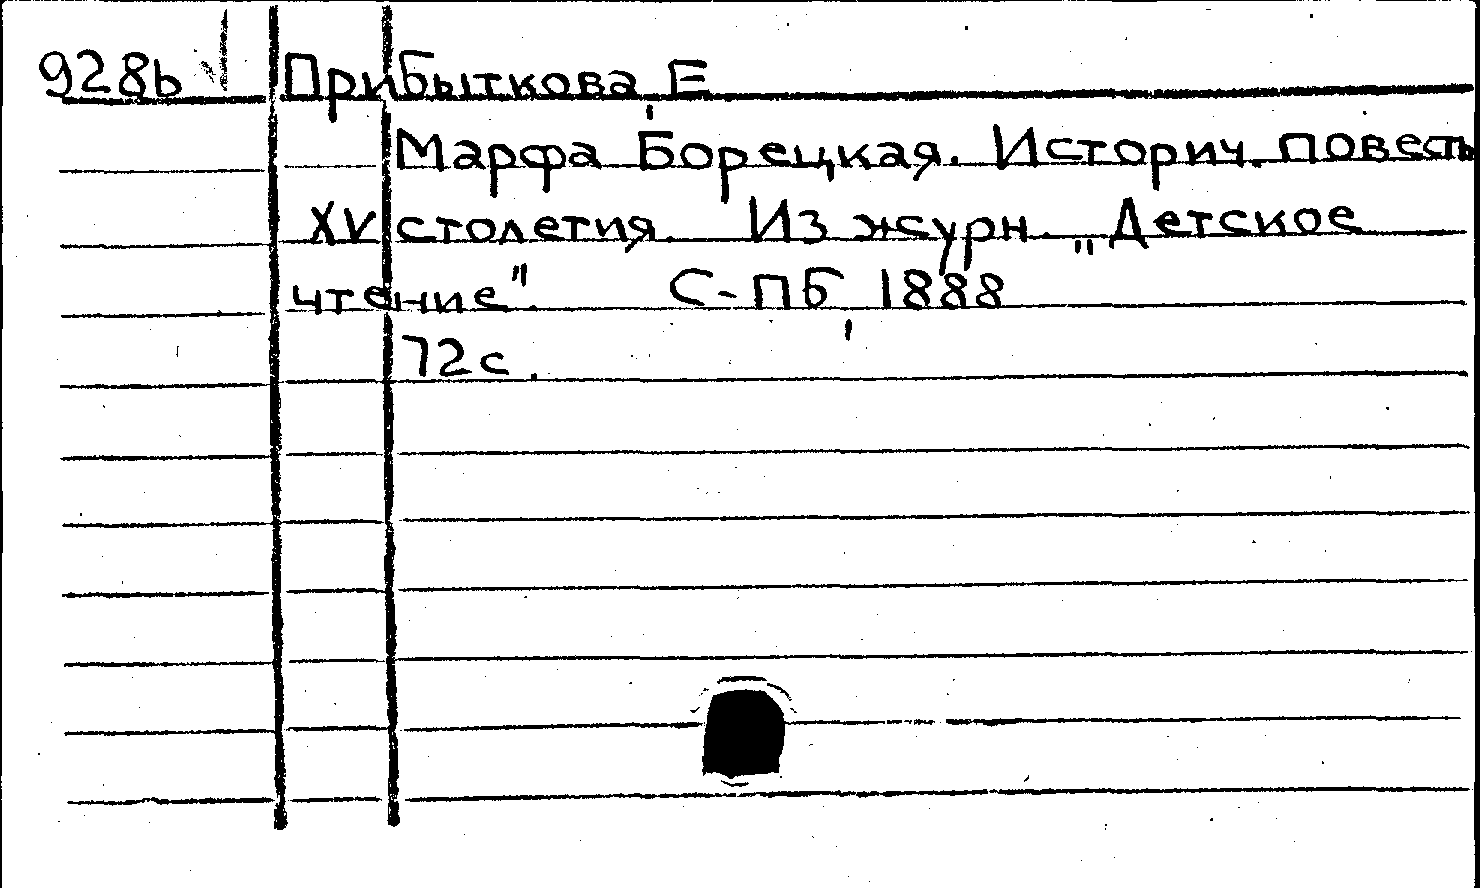 928b Прибыткова, Е
Марфа Борецкая. Историч. повесть
XV столетия. Из журн. „Детское
чтение". С-ПБ, 1888
72с.